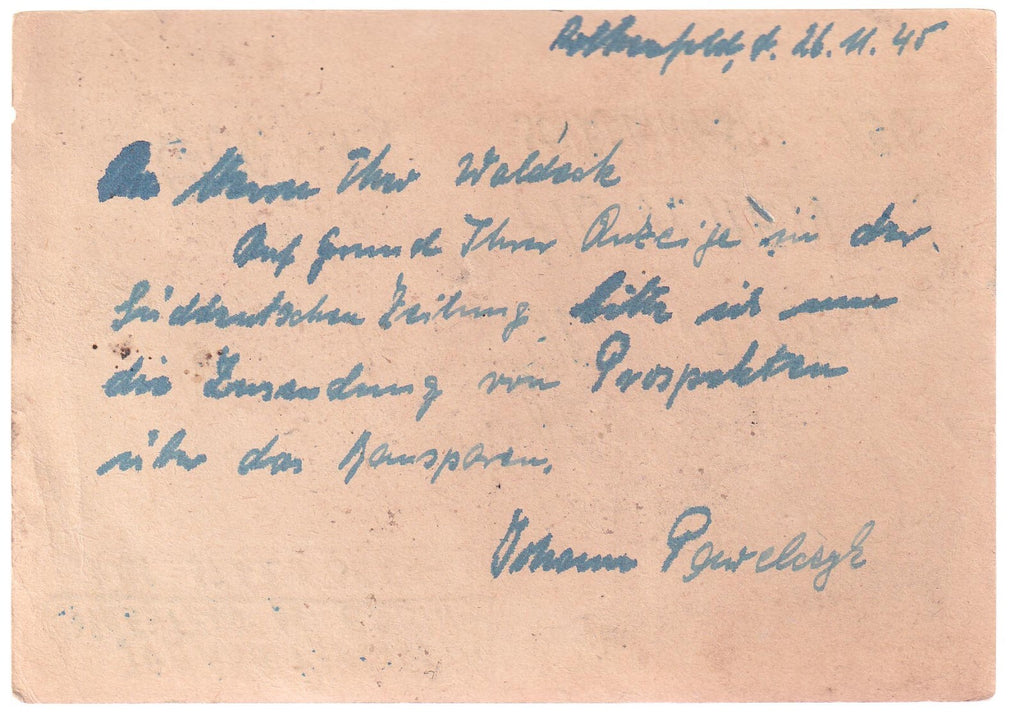 Rothenfeld, d. 26.11.45
An Herrn Theo Waldeck
Auf Grund Ihrer Anzeige in der
Süddeutschen Zeitung bitte ich um
die Zusendung von Prospekten
über das Bausparen.
Johann Pawelczyk